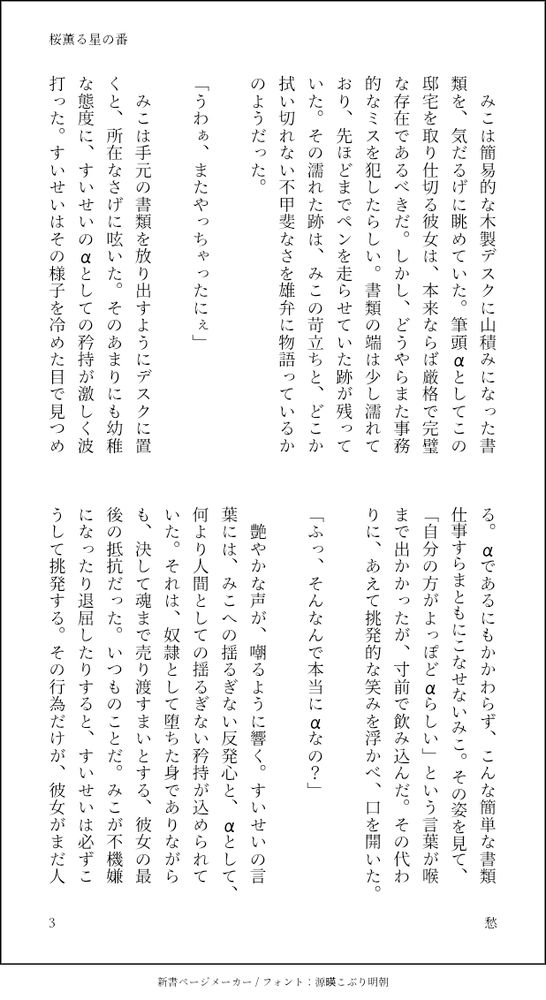 桜薫る星の番
　みこは簡易的な木製デスクに山積みになった書
類を、気だるげに眺めていた。筆頭αとしてこの
邸宅を取り仕切る彼女は、本来ならば厳格で完璧
な存在であるべきだ。しかし、どうやらまた事務
的なミスを犯したらしい。書類の端は少し濡れて
おり、先ほどまでペンを走らせていた跡が残って
いた。その濡れた跡は、みこの苛立ちと、どこか
拭い切れない不甲斐なさを雄弁に物語っているか
のようだった。
「うわぁ、またやっちゃったにぇ」
　みこは手元の書類を放り出すようにデスクに置
くと、所在なさげに呟いた。そのあまりにも幼稚
な態度に、すいせいのαとしての矜持が激しく波
打った。すいせいはその様子を冷めた目で見つめ
る。αであるにもかかわらず、こんな簡単な書類
仕事すらまともにこなせないみこ。その姿を見て、
「自分の方がよっぽどαらしい」という言葉が喉
まで出かかったが、寸前で飲み込んだ。その代わ
りに、あえて挑発的な笑みを浮かべ、口を開いた。
「ふっ、そんなんで本当にαなの？」
　艶やかな声が、嘲るように響く。すいせいの言
葉には、みこへの揺るぎない反発心と、αとして、
何より人間としての揺るぎない矜持が込められて
いた。それは、奴隷として堕ちた身でありながら
も、決して魂まで売り渡すまいとする、彼女の最
後の抵抗だった。いつものことだ。みこが不機嫌
になったり退屈したりすると、すいせいは必ずこ
うして挑発する。その行為だけが、彼女がまだ人
愁
3
新書ページメーカー / フォント：源暎こぶり明朝